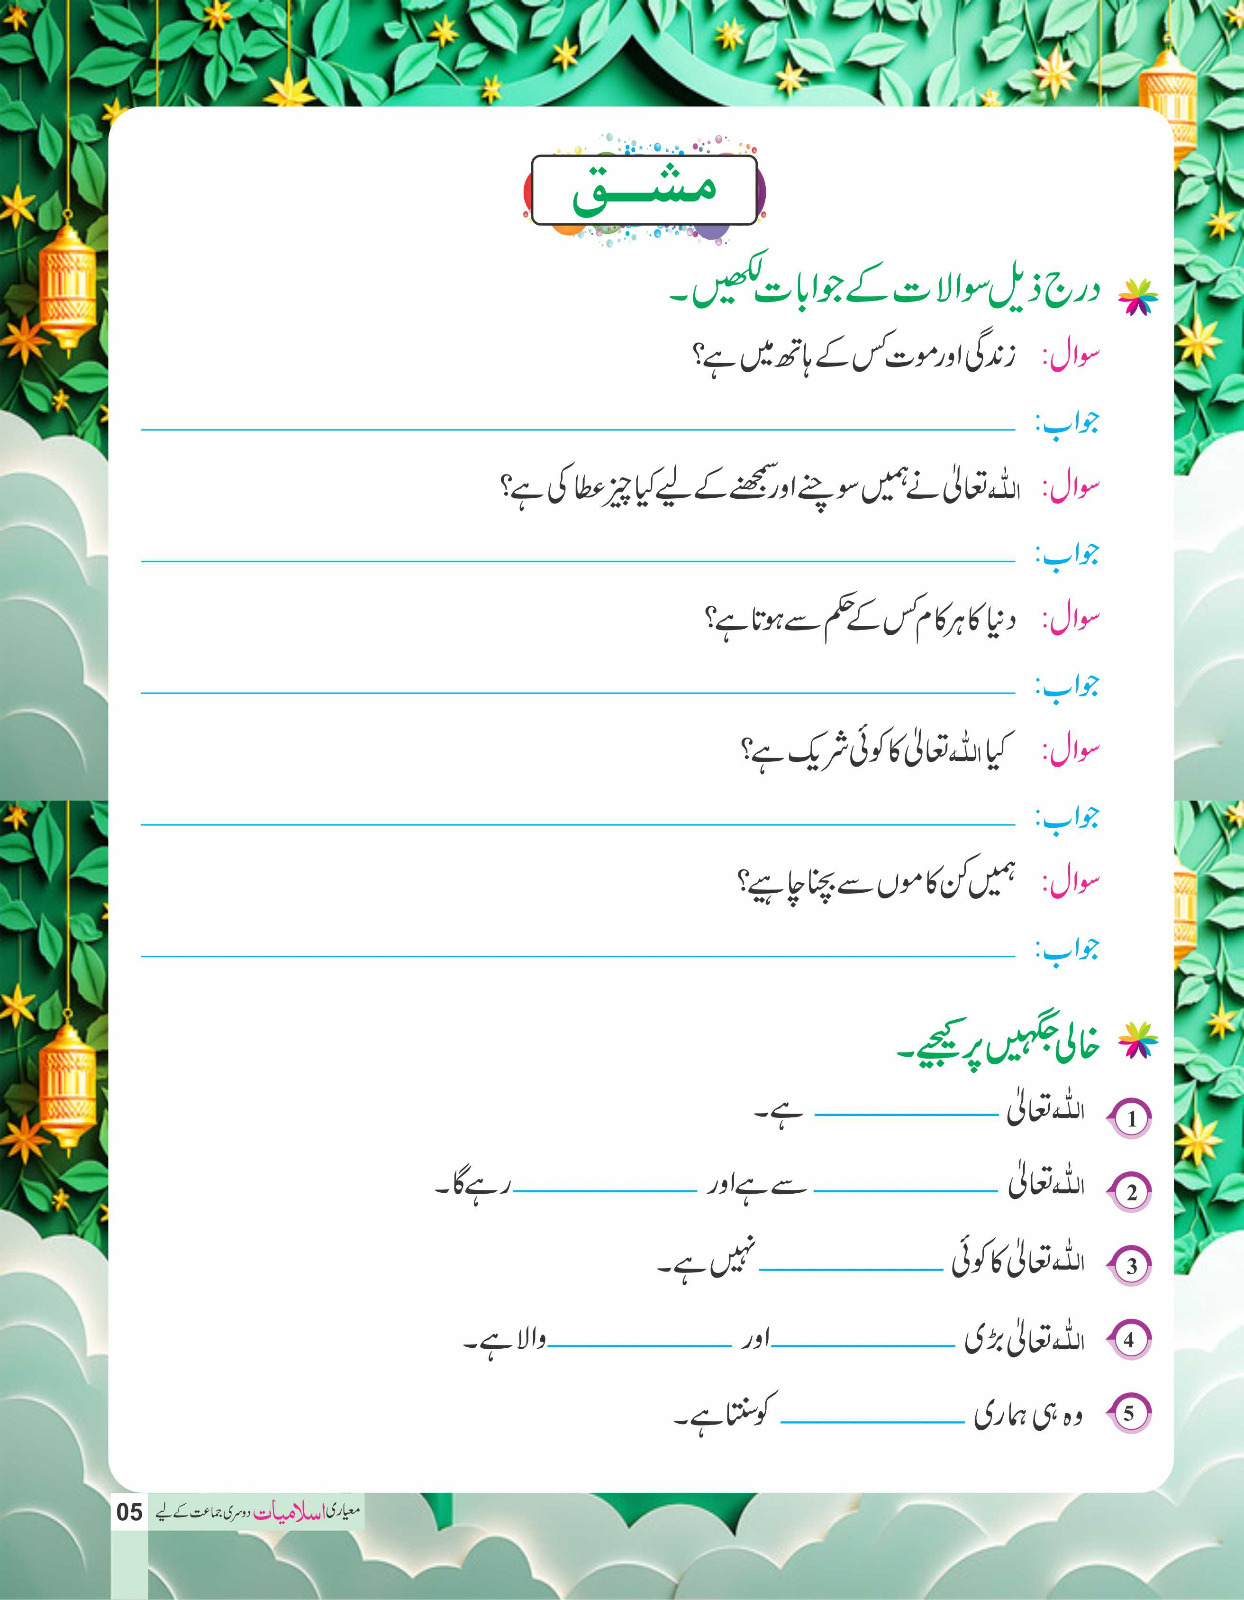 مشق
درج ذیل سوالات کے جوابات لکھیں۔
سوال: زندگی اور موت کس کے ہاتھ میں ہے؟
جواب:
سوال: اللہ تعالیٰ نے ہمیں سوچنے اور سمجھنے کے لیے کیا چیز عطا کی ہے؟
جواب:
سوال: دنیا کا ہر کام کس کے حکم سے ہوتا ہے؟
جواب:
سوال: کیا اللہ تعالیٰ کا کوئی شریک ہے؟
جواب:
سوال: ہمیں کن کاموں سے بچنا چاہیے؟
جواب:
خالی جگہیں پر کیجیے۔
1 اللہ تعالیٰ __________ ہے۔
2 اللہ تعالیٰ __________ سے ہے اور __________ رہے گا۔
3 اللہ تعالیٰ کا کوئی __________ نہیں ہے۔
4 اللہ تعالیٰ بڑی __________ اور __________ والا ہے۔
5 وہ ہی ہماری __________ کو سنتا ہے۔
معیاری اسلامیات دوسری جماعت کے لیے 05